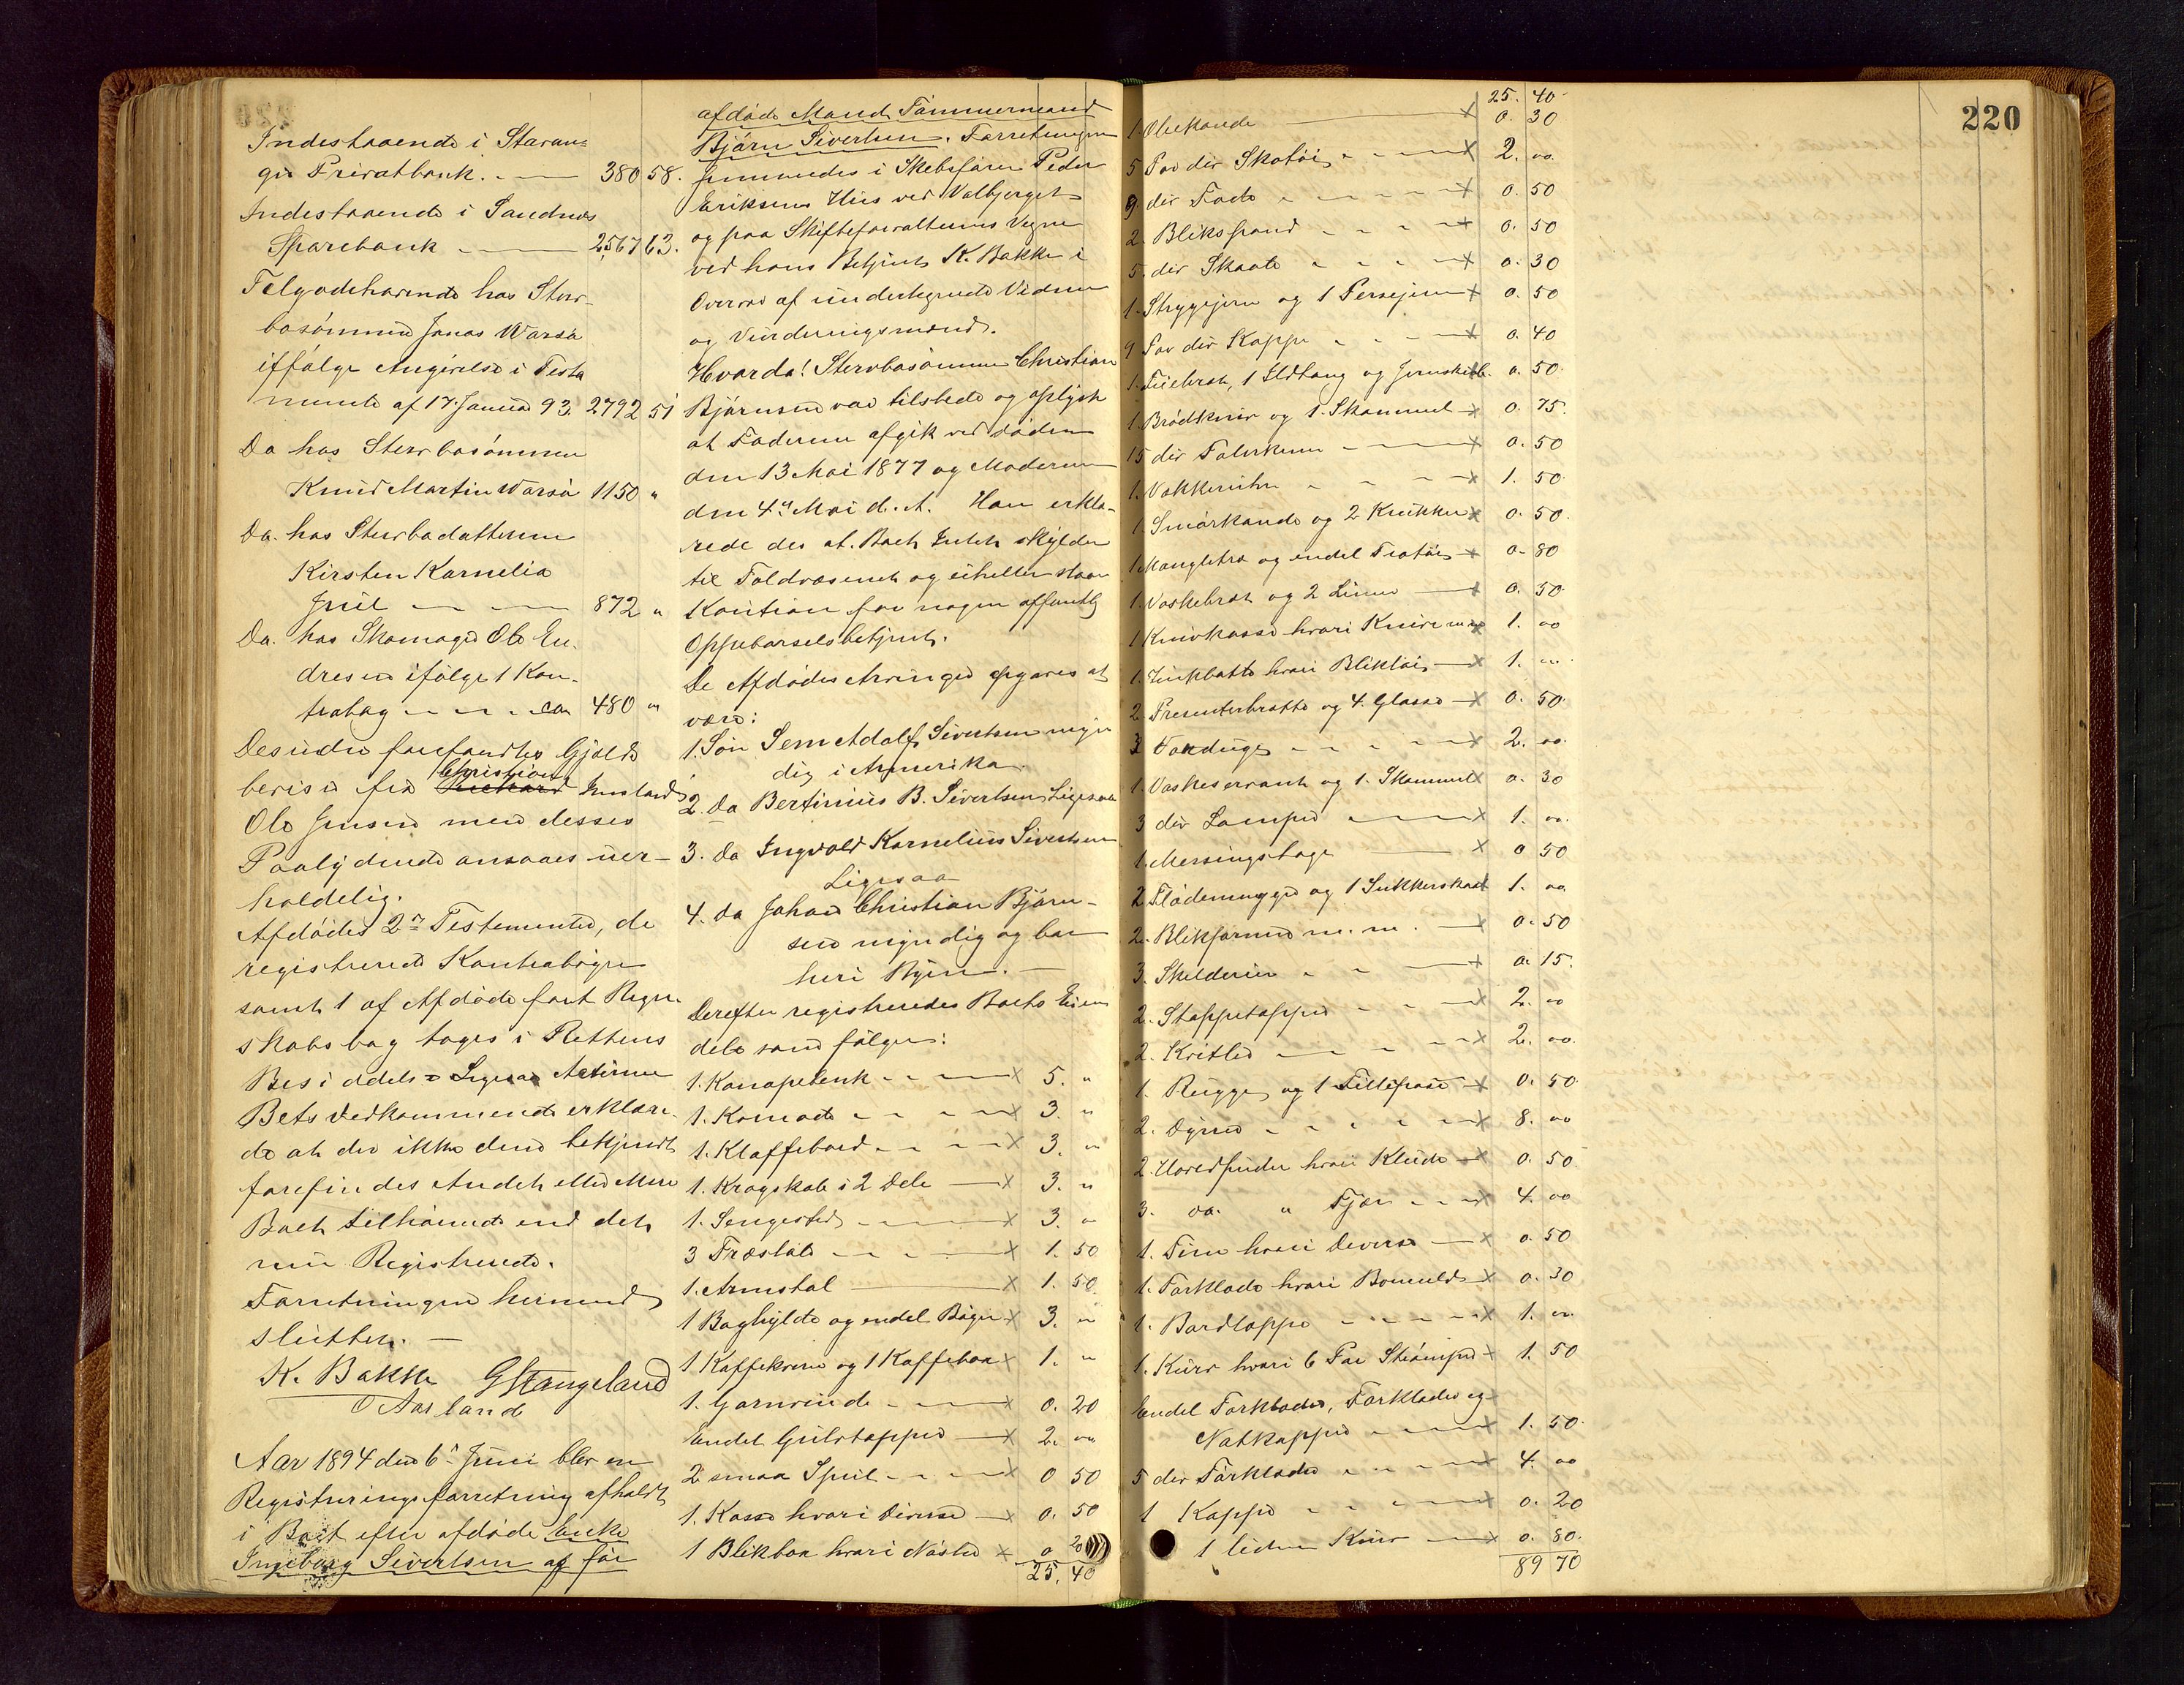 Indestaaende i Stavan=
ger Privatbank. — 380 58.
Indestaaende i Sandnæs
Sparebank — 2,567 63.
Tilgodehavende hos Sterv-
bosønnen Jonas Warsø
ifølge Angivelse i Testa
mente af 17. Januar 93. 2792 51
Do hos Stervbosønnen
Knud Martin Warsø 1150 "
Do. hos Stervbodatteren
Kirsten Kornelia
Juul — 872 "
Do. hos Skomager Ole En-
dresen ifølge 1 Kon-
trabog - - - ca 480 "
Desuden forefandtes Gjælds
bevis fra Christian
Ole Jensen men desses
Paalydende ansaaes uer-
holdelig.
Afdødes 2de Testamenter, de
registrerede Kontrabøger
samt 1 af Afdøde ført Regn-
skabsbog toges i Rettens
Besiddelse. Ligesaa Actierne
Bets Vedkommende erklære-
de at der ikke dem bekjendt
forefindes Andet eller Mere
Boet tilhørende end det
nu Registrerede.
Forretningen hermed
sluttet. —
K. Bakke GStangeland
O Aarland
Aar 1894 den 6te Juni blev en
Registreringsforretning afholdt
i Boet efter afdøde Enke
Ingeborg Sivertsen og før
afdøde Mand Tømmermand
Bjørn Sivertsen. Forretningen
fremmedes i Skibsfører Peder
Eriksens Hus ved Valbjerget
og paa Skifteforvalterens Vegne
ved hans Betjent K. Bakke i
Overvær af undertegnede Vidner
og Vurderingsmænd.
Hvorda! Stervbosønnen Christian
Bjørnsen var tilstede og oplyste
at Faderen afgik ved døden
den 13 Mai 1877 og Moderen
den 4de Mai d. A. Han erklæ-
rede der at Boet Intet skylder
til Toldvæsenet og eiheller staar
i Kaution for nogen offentlig
Oppebørselsbetjent.
De Afdødes Arvinger opgaves at
være:
1. Søn Sem Adolf Sivertsen myn
dig i Amerika.
2. Do Bertinius B. Sivertsen Ligesaa
3. Do Ingvald Kornelius Sivertsen
Ligesaa
4. Do Johan Christian Bjørn-
sen myndig og bor
heri Byen. —
Derefter registreredes Boets Eien
dele som følger:
1. Kanapebænk - - — x 5. "
1. Komode - - - - x 3. "
1. Klaffebord - - - - x 3. "
1. Kragskab i 2 Dele — x 3. "
1. Sengested - — x 3. "
3 Træstole - - — x 1. 50
1. Armstol — x 1. 50
1 Boghylde og endel Bøger x 3. "
1 Kaffekværn og 1 Kaffebox x 1. "
1. Garnvinde - - — x 0. 20
Endel Gulvtæpper — x 2. oo
2 smaa Speil - - - x 0 50
1. Kasse hvori Diverse — x 0. 50
1 Blikbox hvori Nøster x 0 20
25. 40
220
25. 40
1 Oliekande — x 0. 30
5 Par div Skotøi - - — x 2. oo
9 div Fade - - - - — x 0. 50
2. Blikspand - - - - x 0. 50
5. div Skaale - - - - x 0. 30
1. Strygejern og 1 Persejern x 0. 50
9 Par div Kopper - - — x 0. 40
1. Feiebræt, 1 Ildtang og Jernskuffe. 0. 50
1. Brødkurv og 1. Skammel x 0. 75
15 div Talerkener - — x 0. 50
1. Vækkeruhr - - - - x 1. 50
1 Smørkande og 2 Krukker x 0. 50.
1. Mangletræ og endel Trætøi x 0. 80
1. Vaskebræt og 2 Liner — x 0. 50
1 Knivkasse hvori Knive m. m x 1. oo
1. Zinkbøtte hvori Bliktøi — x 1. "
2. Presenterbrætte og 4. Glasse — x 0. 50.
3 Vanduge - - - - — x 2. oo.
1. Vaskeservant og 1. Skammel x 0. 30
3 div Lamper - — x 1. oo.
1. Messingstage — x 0 50
2. Flødemugger og 1 Sukkerskaal 1. oo
2. Blikformer m. m. — x 0. 50
3. Skilderier - - — x 0. 15.
2. Stoppetæpper - - - x 2. oo
2. Kvitler - - - - x 2. oo.
1. Rugge og 1 Fillepose x 0. 50.
2. Dyner - - - - - x 8. oo
2. Hovedpuder hvori Klude x 0. 50
3. Do. " Fjær - - x 4. oo
1. Tine hvori Diverse — x 0. 50
1. Forklæde hvori Bomuld x 0. 30
1. Bordtæppe - - - - x 1. "
1. Kurv hvori 6 Par Strømper x 1. 50
Endel Forklæder, Forklæder og
Natkapper - - — x 1. 50.
5 div Forklæder - - - x 4. oo
1 Kappe - - - - x 0. 20
1 liden Kurv — x 0. 80.
89 70